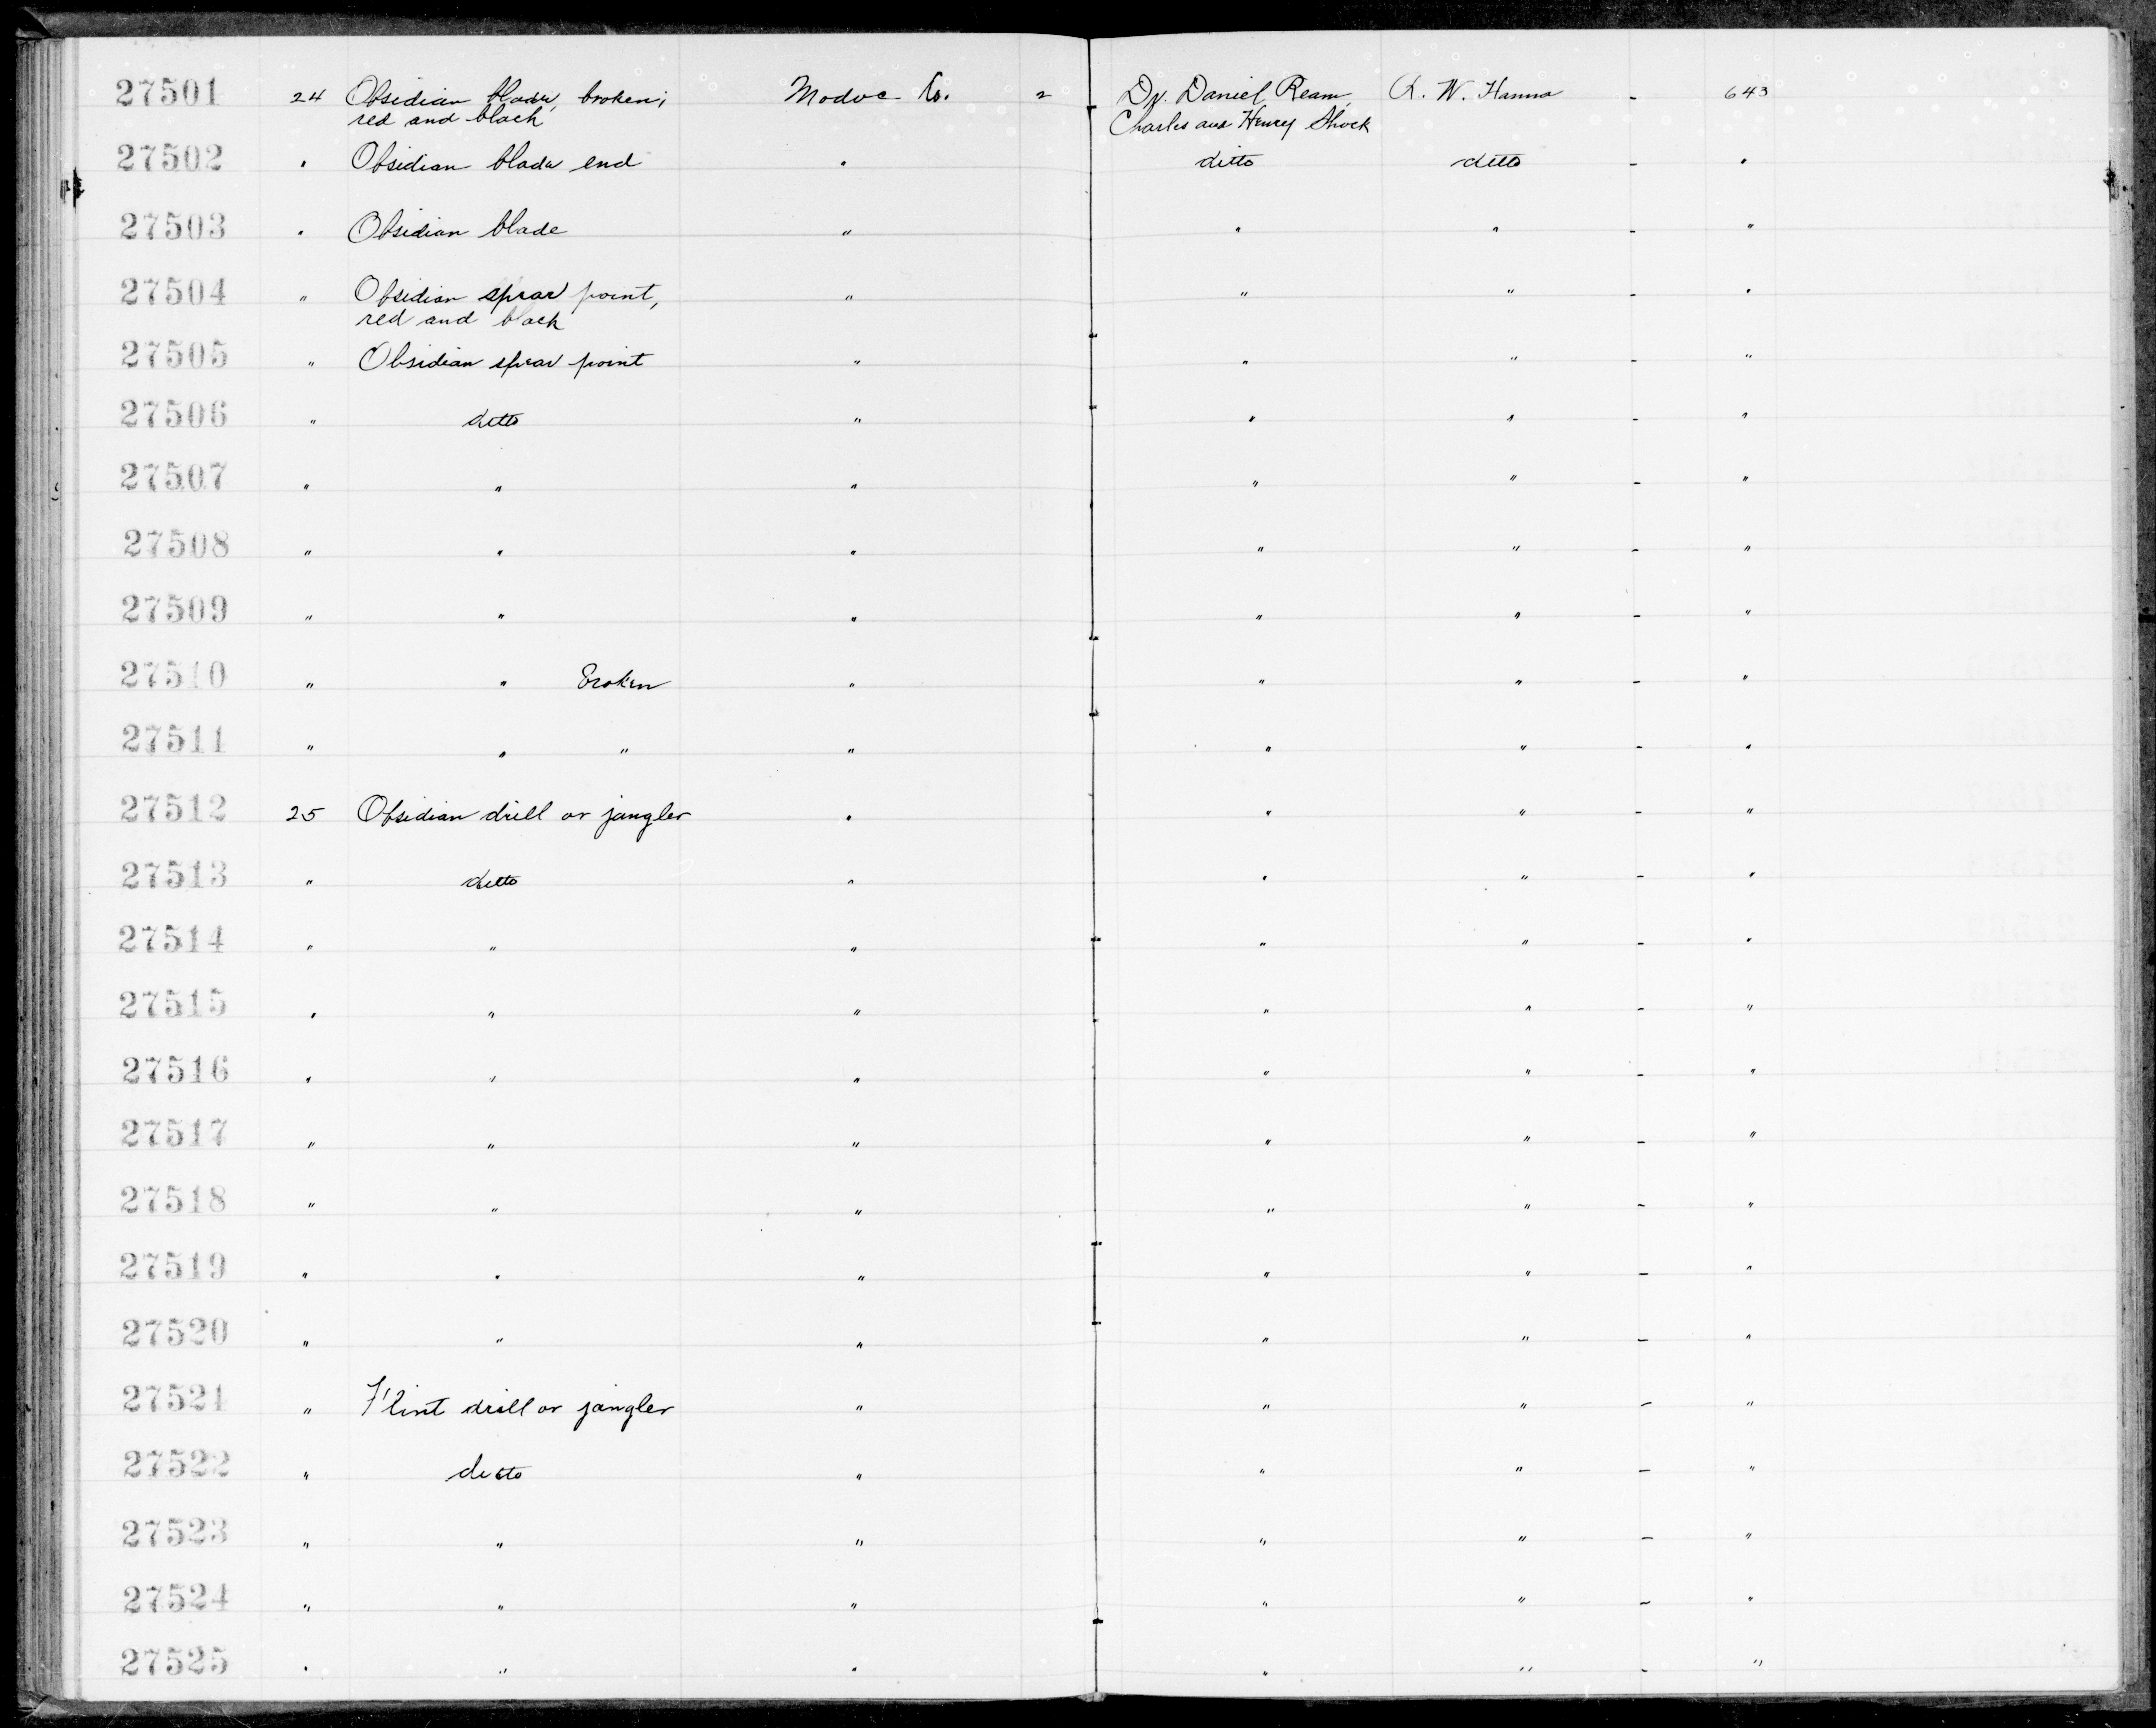 27501 24 Obsidian blade, broken; Modoc Co. 2 Dr. Daniel Ream, R. W. Hanna - 643
red and black Charles and Henry Shock
27502 " Obsidian blade end " ditto ditto - "
27503 " Obsidian blade " " " - "
27504 " Obsidian spear point, " " " - "
red and black
27505 " Obsidian spear point " " " - "
27506 " ditto " " " - "
27507 " " " " " - "
27508 " " " " " - "
27509 " " " " " - "
27510 " " Broken " " " - "
27511 " " " " " " - "
27512 25 Obsidian drill or jangler " " " - "
27513 " ditto " " " - "
27514 " " " " " - "
27515 " " " " " - "
27516 " " " " " - "
27517 " " " " " - "
27518 " " " " " - "
27519 " " " " " - "
27520 " " " " " - "
27521 " Flint drill or jangler " " " - "
27522 " ditto " " " - "
27523 " " " " " - "
27524 " " " " " - "
27525 " " " " " - "